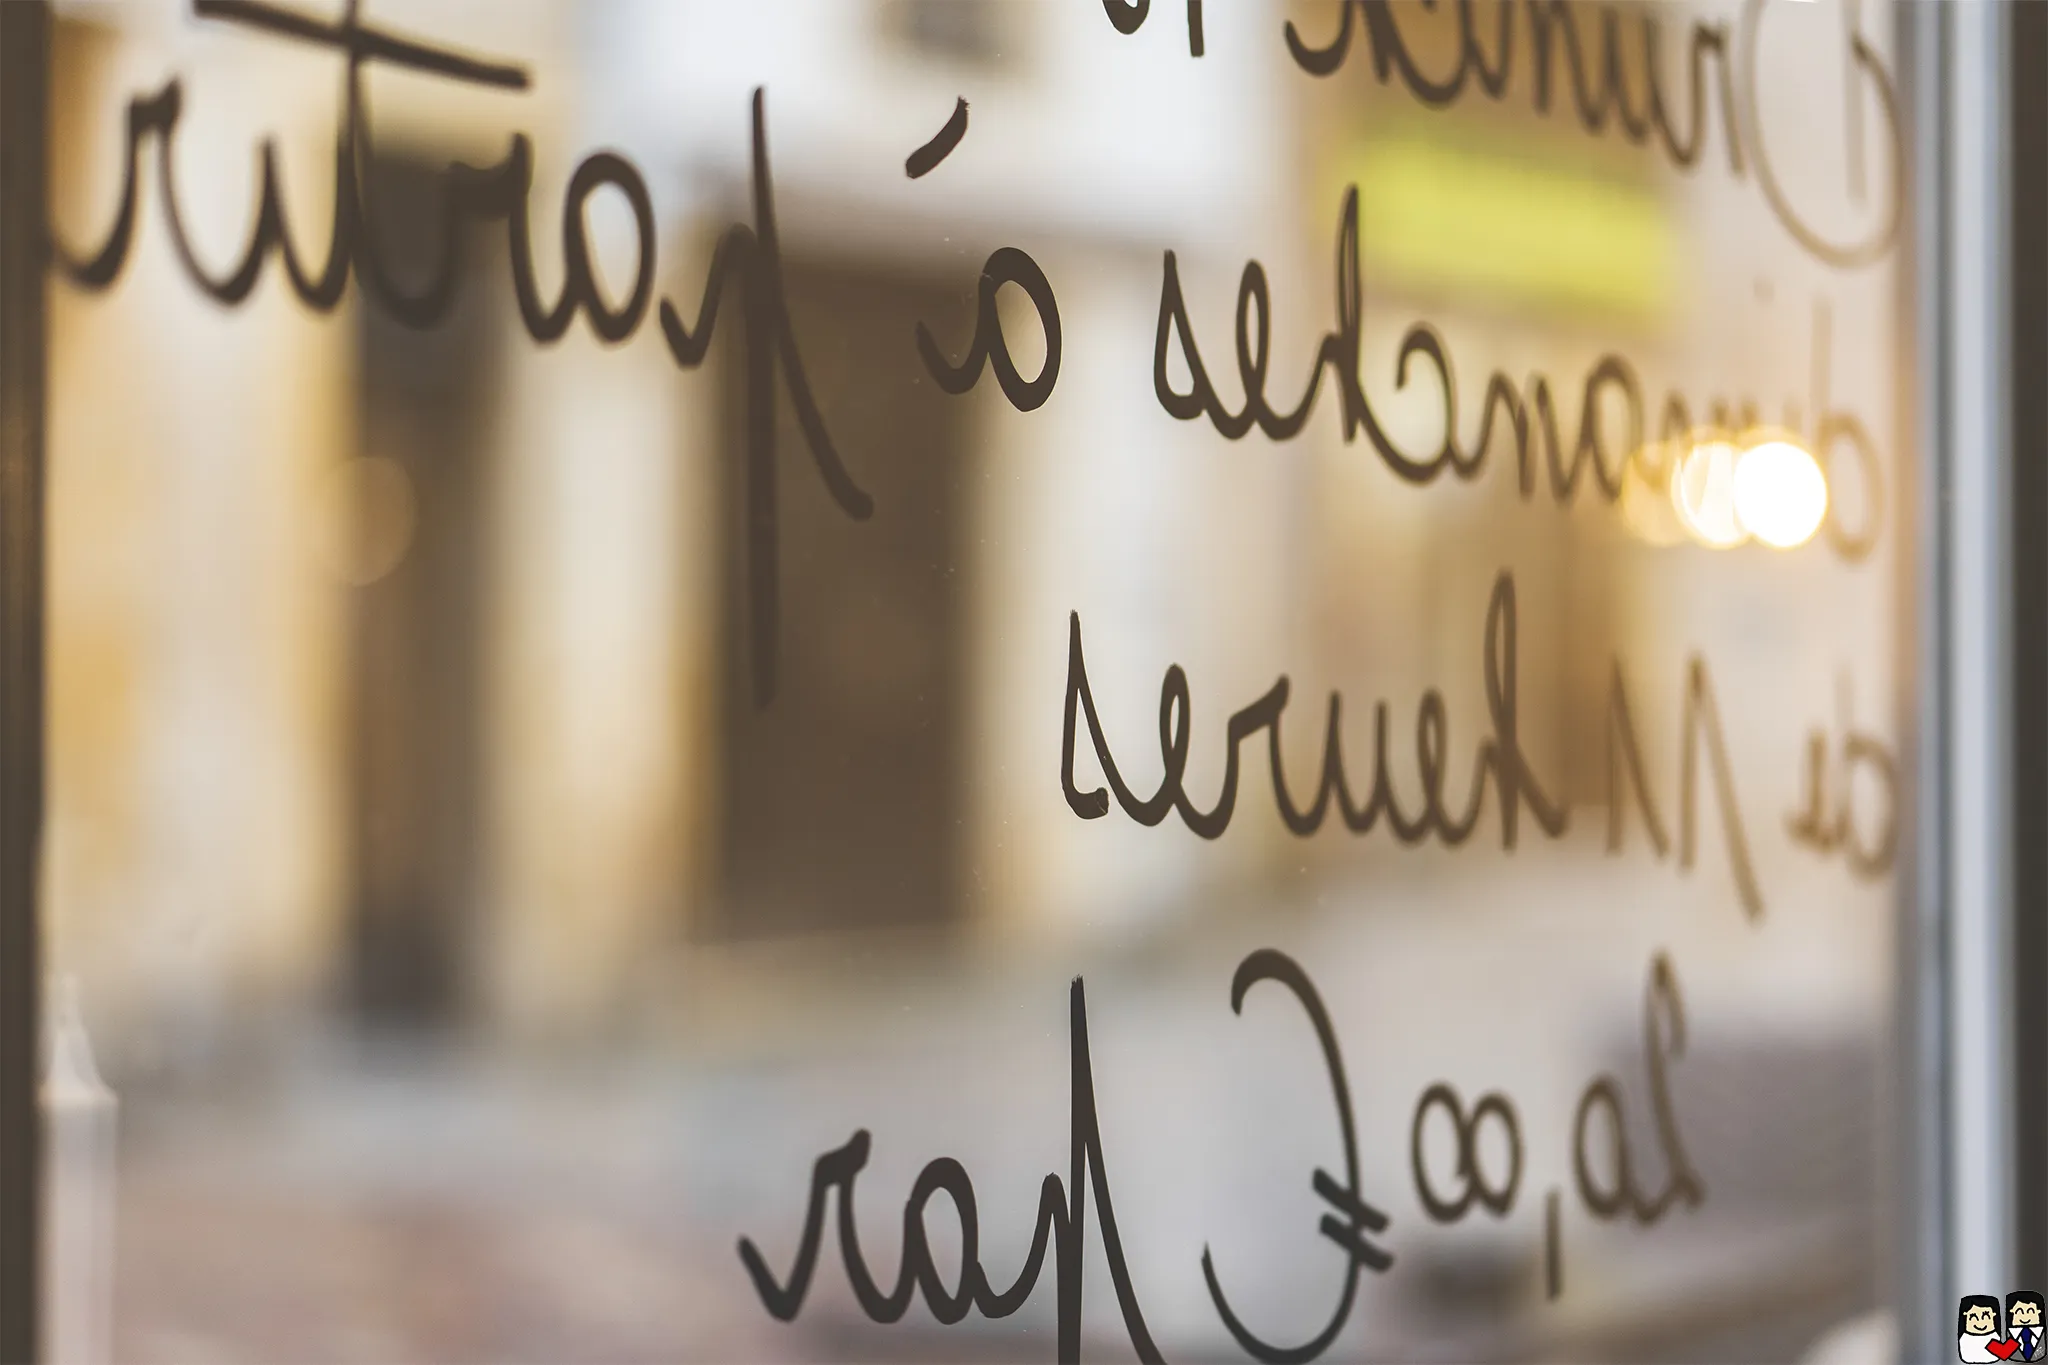 Brunch
dimanches à partir
de 11 heures
20,00€ par